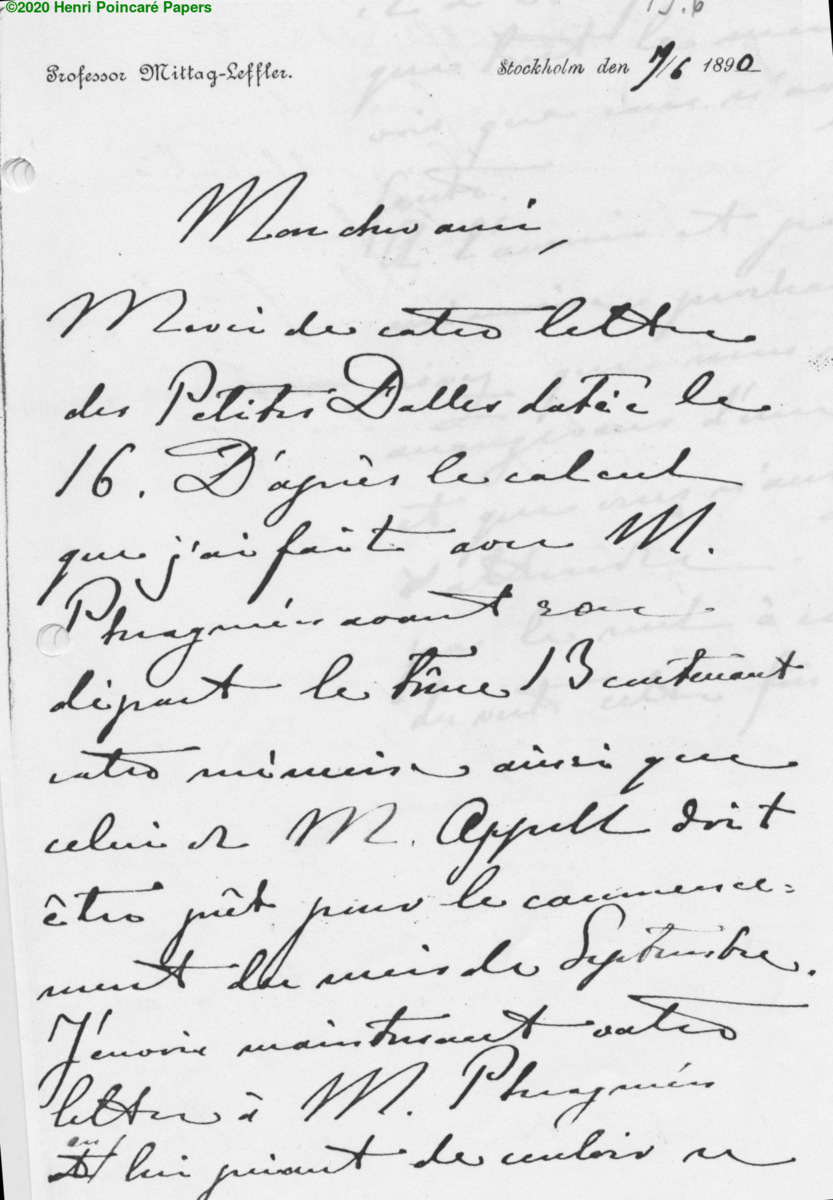 ©2020 Henri Poincaré Papers
Professor Mittag-Leffler.
Stockholm den 7/6 1890
Mon cher ami,
Merci de votre lettre
des Petites Dalles datée le
16. D'après le calcul
que j'ai fait avec M.
Phragmén avant son
départ le tome 13 contenant
votre mémoire ainsi que
celui de M. Appell doit
être prêt pour le commence=
ment du mois de Septembre.
J'envoie maintenant votre
lettre à M. Phragmén
en lui priant de vouloir se